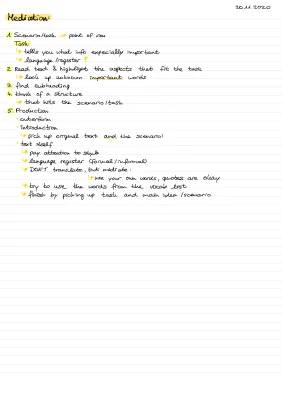 20.11.2020
Mediation
1. Scenario/task → point of view
Task
→ tells you what info especially important
→ language/register !
2. Read text & highlight the aspects that fit the task
→ look up unknown important words
3. find subheading
4. think of a structure
→ that hits the scenario/task
5. Production
· outenform
· Introduction
→ pick up original text and the scenario!
· text itself
→ pay attention to style
→ language register (formal/informal)
→ DON'T translate, but mediate:
→ use your own words, quotes are okay
→ try to use the words from the vocab test
→ finish by picking up task and main idea/scenario